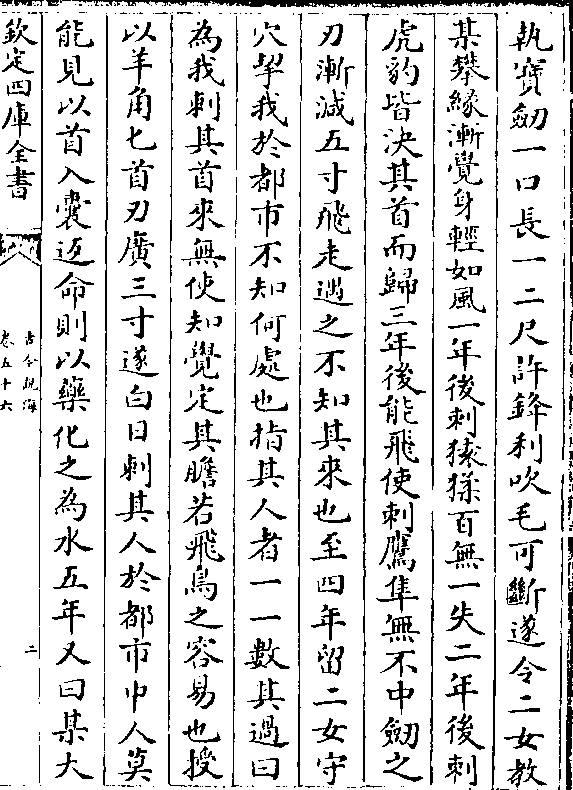 執寳劒一口長一二尺許鋒利吹毛可斷遂令二女教
某攀緣漸覺身輕如風一年後刺猿猱百無一失二年後刺
虎豹皆决其首而歸三年後能飛使刺鷹隼無不中劒之
刃漸減五寸飛走遇之不知其來也至四年留二女守
穴挈我於都市不知何處也指其人者一一數其過曰
為我刺其首來無使知覺定其膽若飛鳥之容易也授
以羊角匕首刃廣三寸遂白日刺其人於都市中人莫
能見以首入囊返命則以藥化之為水五年又曰某大
欽定四庫全書
古今説海
卷五十六
二